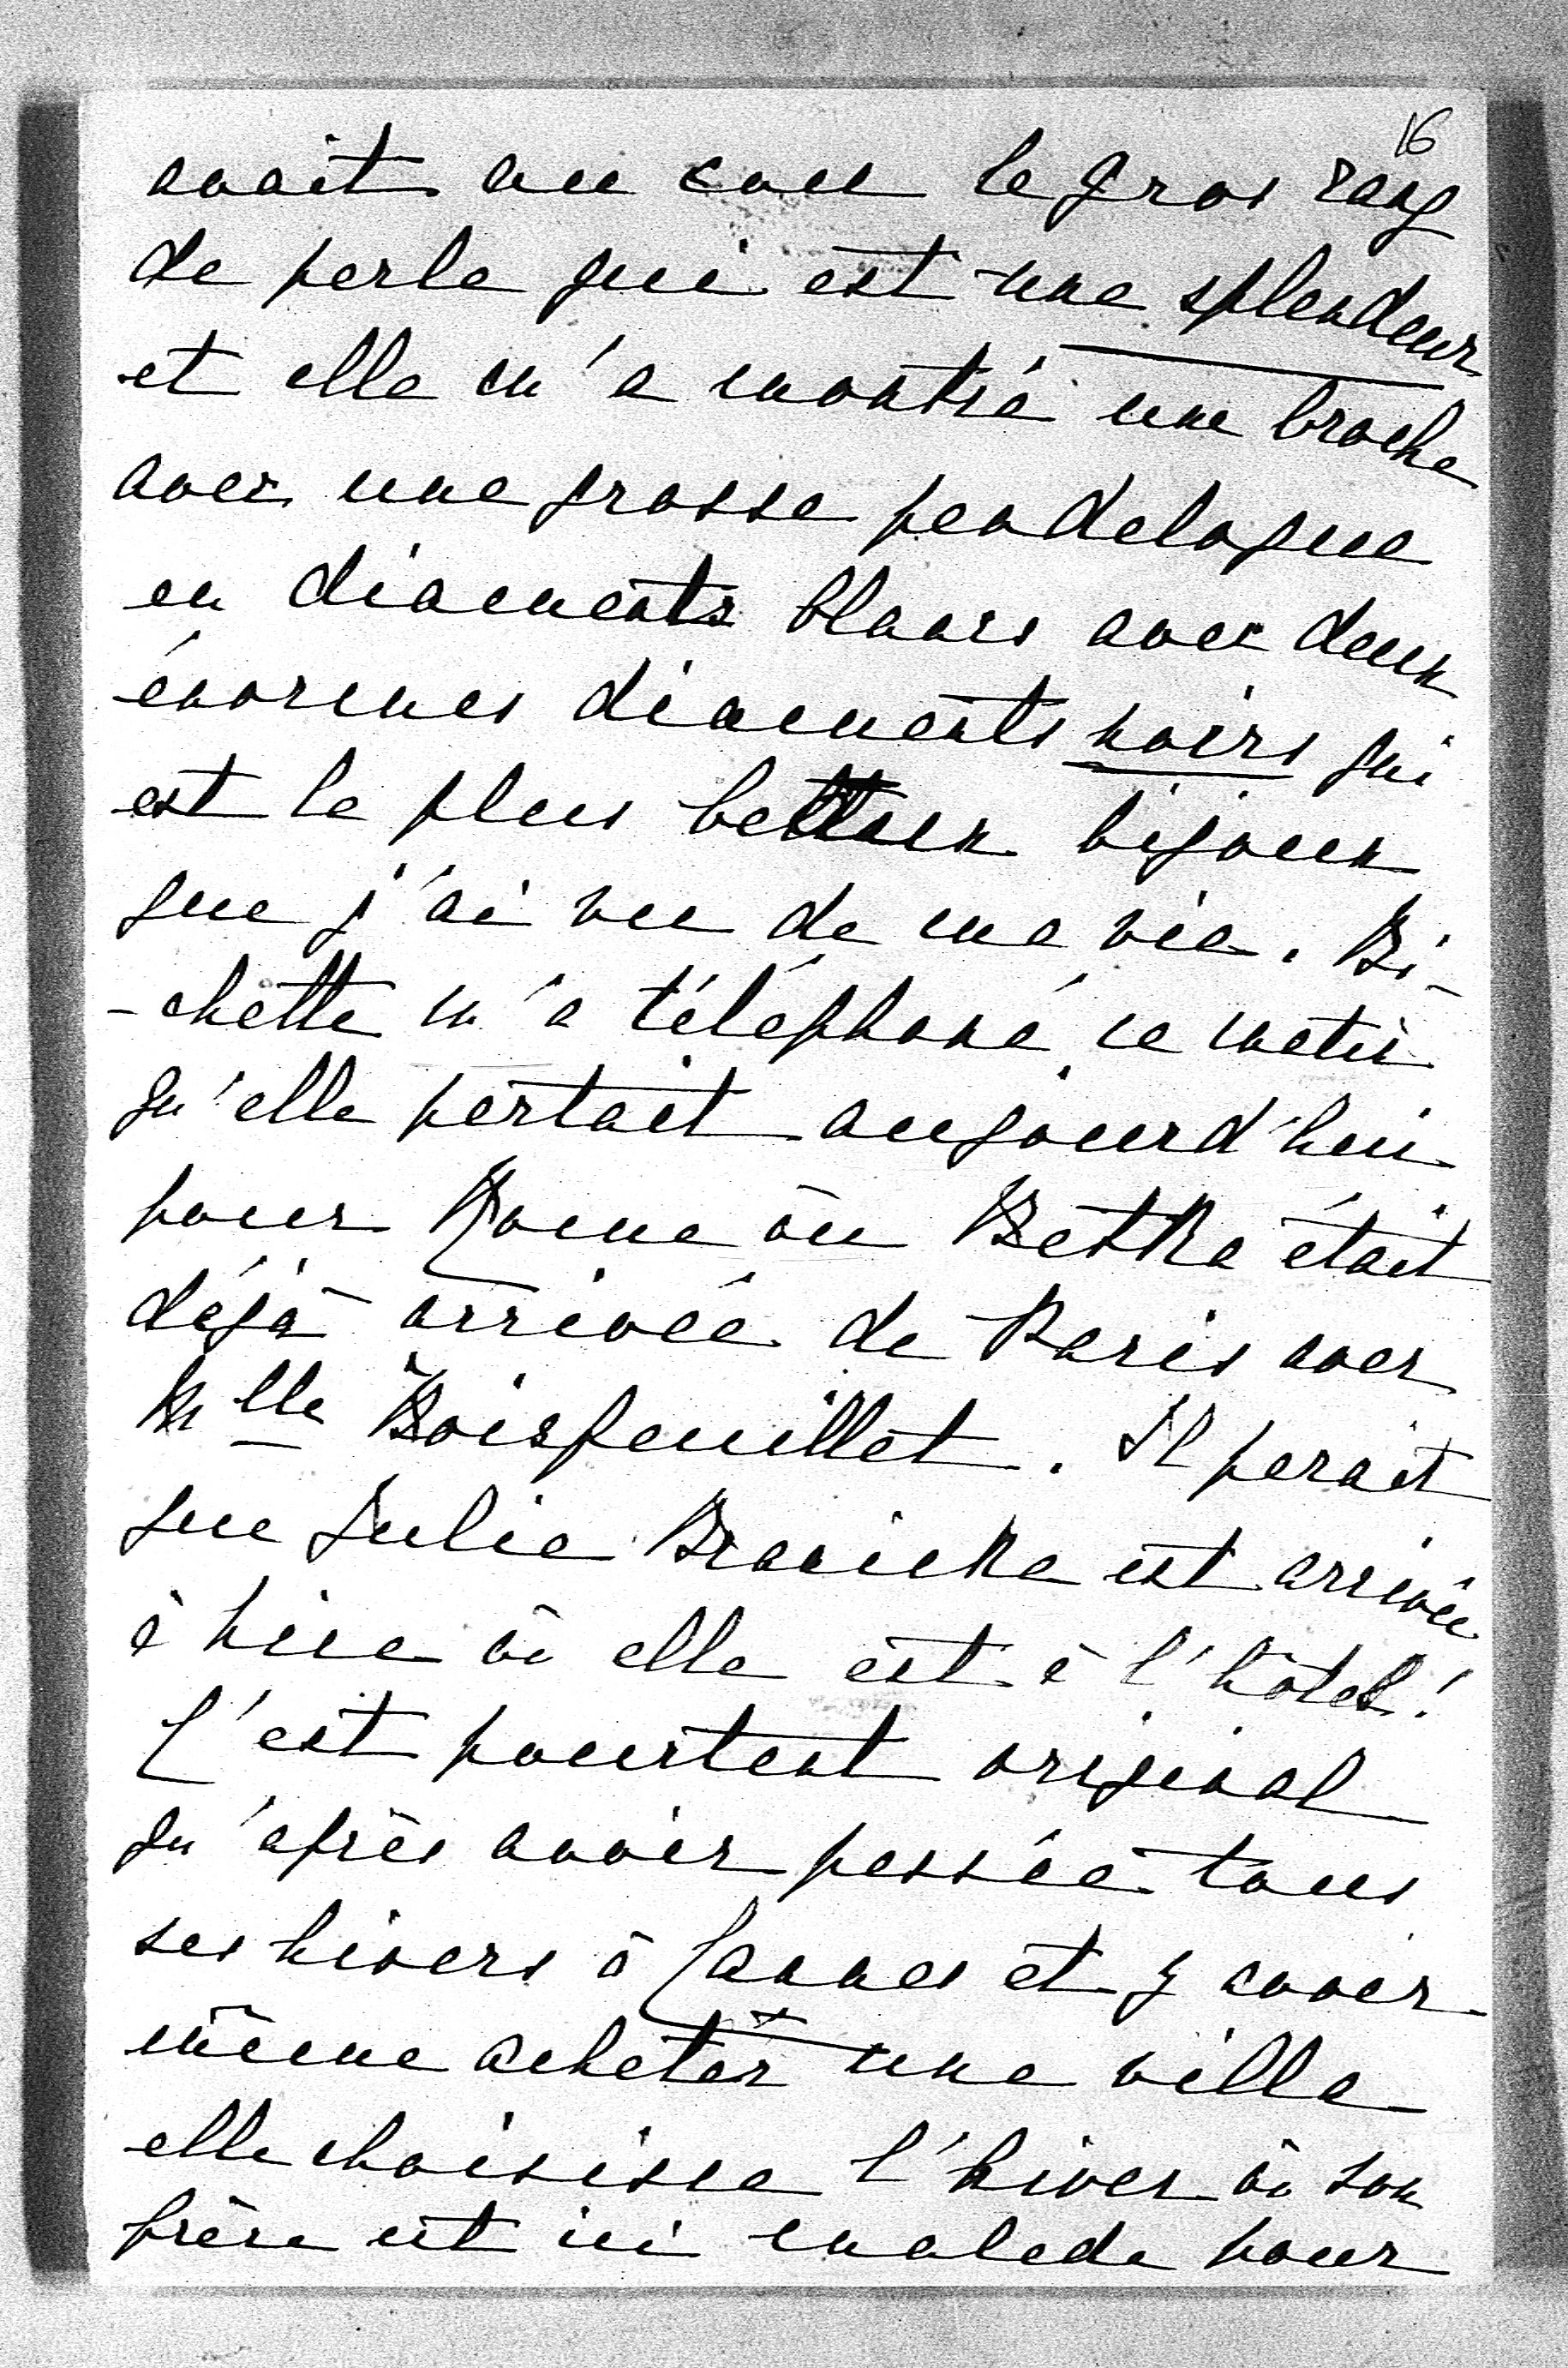 16
avait au cou le gros rang
de perle qui est une splendeur
et elle m'a montré une broche
avec une grosse pendeloque
en diamants blancs avec deux
énormes diamants noirs qui
est le plus beau bijoux
que j'ai vu de ma vie. Bi-
-chette m'a téléphoné ce matin
qu'elle partait aujourd'hui
pour Rome où Betka était
déjà arrivée de Paris avec
Mlle Boisfeuillet. Il parait
que Julie Branicka est arrivée
à Nice où elle est à l'hôtel!
C'est pourtant original
qu'après avoir passée tous
ses hivers à Cannes et y avoir
même acheter une villa
elle choisisse l'hiver où son
frère est ici malade pour